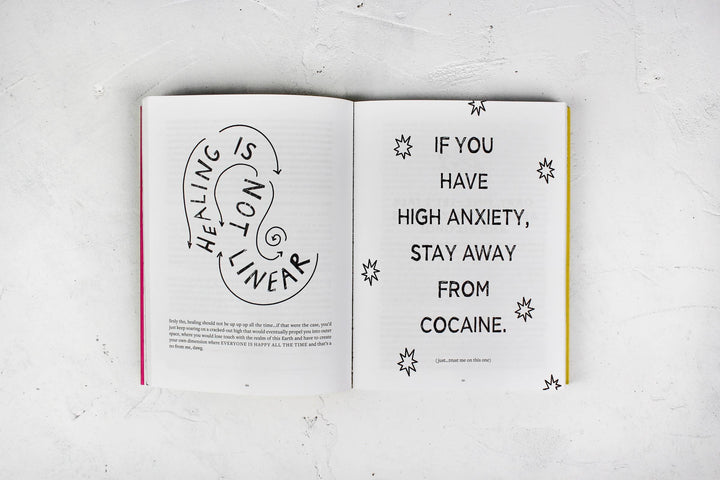 HEALING IS
NOT
LINEAR
Srsly tho, healing should not be up up up all the time...if that were the case, you'd
just keep soaring on a cracked-out high that would eventually propel you into outer
space, where you would lose touch with the realm of this Earth and have to create
your own dimension where EVERYONE IS HAPPY ALL THE TIME and that's a
no from me, dawg.
IF YOU
HAVE
HIGH ANXIETY,
STAY AWAY
FROM
COCAINE.
(just...trust me on this one)